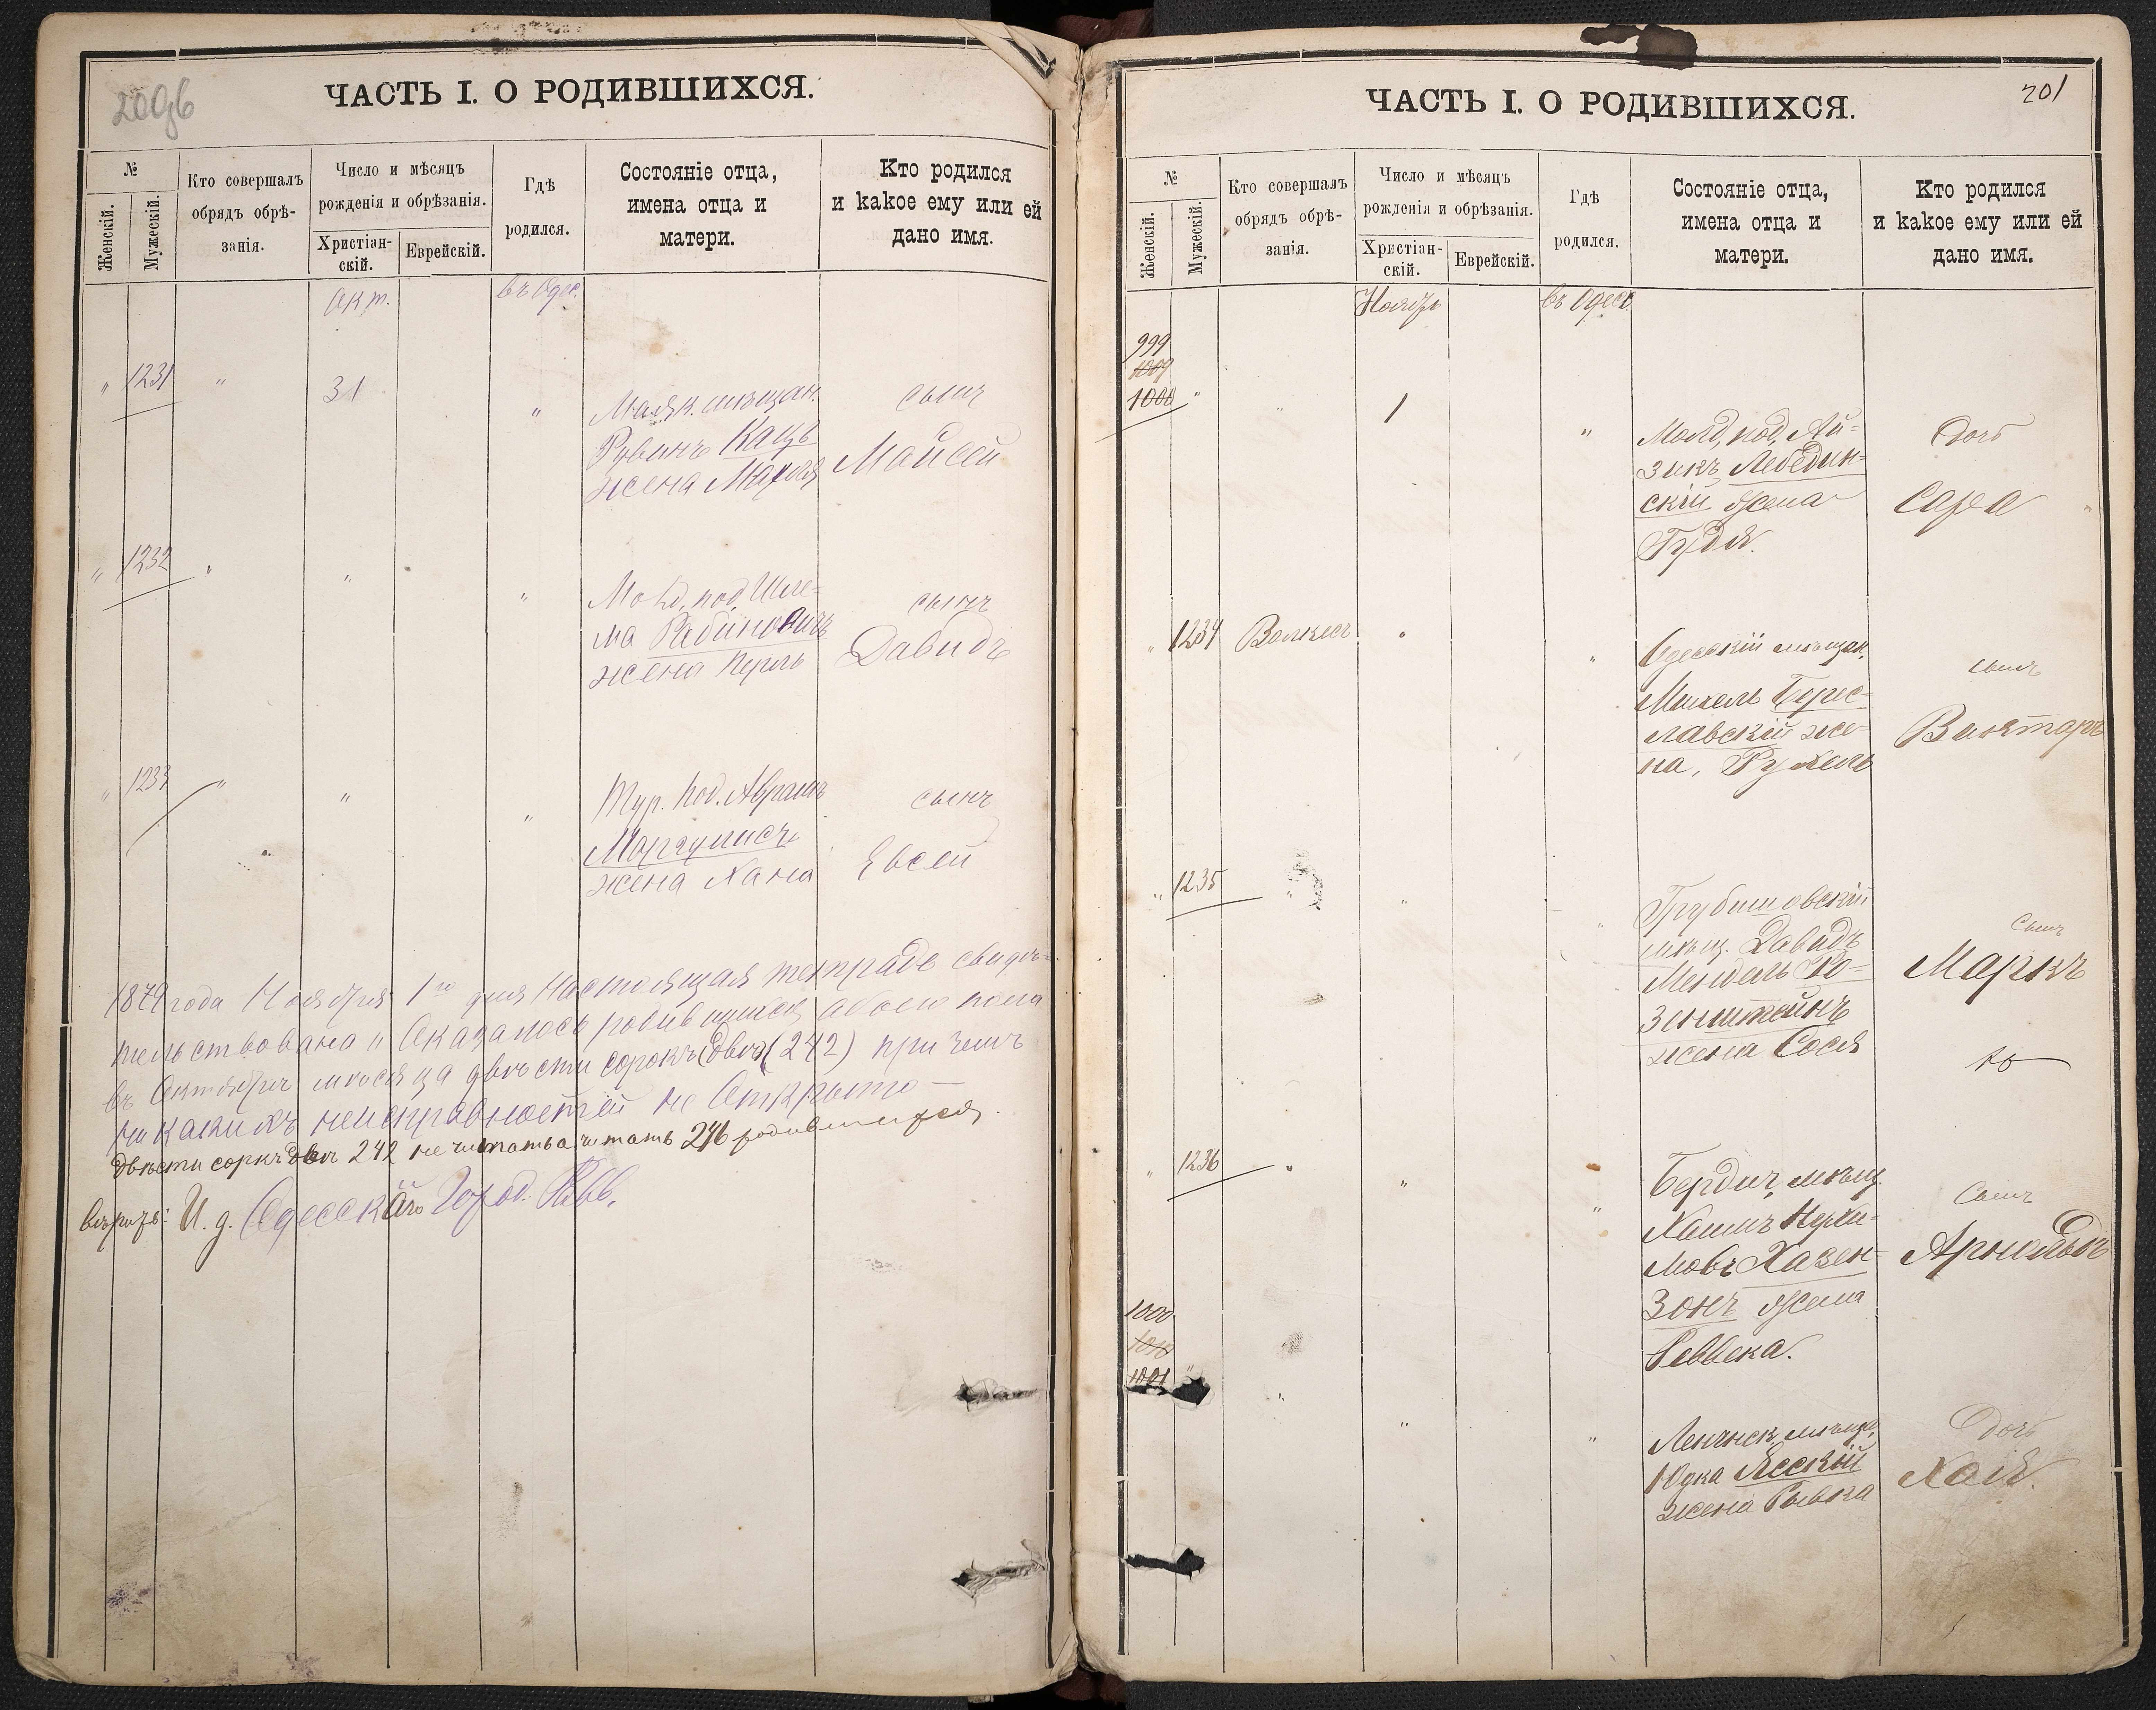 200б
ЧАСТЬ I. О РОДИВШИХСЯ.
№
Женскій.
Мужескій.
Кто совершалъ
обрядъ обрѣ-
занія.
Число и мѣсяцъ
рожденія и обрѣзанія.
Христіан-
скій.
Еврейскій.
Гдѣ
родился.
Состояніе отца,
имена отца и
матери.
Кто родился
и какое ему или ей
дано имя.
Окт.
въ Одес.
" 1231 " 31 "
Маяк. мѣщан.
Рувинъ Кацъ
жена Махля
сынъ
Мойсей
" 1232 " " "
Молд. под. Шле-
ма Рабиновичъ
жена Перль
сынъ
Давидъ
" 1233 " " "
Тур. под. Аврамъ
Маргулисъ
жена Хана
сынъ
Евсей
1879 года Ноября 1го дня Настоящая тетрадь свидѣ-
тельствована и Оказалось родившихся обоего пола
въ Октябрѣ мѣсяца двѣсти сорокъ два (242) при чемъ
ни какихъ неисправностей не Открыто —
двѣсти сорокъ два 242 не читать а читать 246 родившихся.
И. д. Одесскаго Город. Равв.
201
ЧАСТЬ I. О РОДИВШИХСЯ.
№
Женскій.
Мужескій.
Кто совершалъ
обрядъ обрѣ-
занія.
Число и мѣсяцъ
рожденія и обрѣзанія.
Христіан-
скій.
Еврейскій.
Гдѣ
родился.
Состояніе отца,
имена отца и
матери.
Кто родился
и какое ему или ей
дано имя.
Ноябрь
въ Одесс.
999
1009
1000 " " 1 "
Молд. под. Ай-
зикъ Лебедин-
скій жена
Гудя.
Дочь
Сара
" 1234 Волкесъ " "
Одесскій мѣщан.
Михель Берис-
лавскій же-
на, Рухель
сынъ
Викторъ
" 1235 " " "
Грубешовскій
мѣщ. Давидъ
Мендель Ро-
зенштейнъ
жена Сося
Сынъ
Маркъ
" 1236 " " "
Бердич. мѣщ.
Хаимъ Нухи-
мовъ Хазен-
зонъ жена
Реввека.
Сынъ
Арнольдъ
1000
1010
1001 " " " "
мѣщ.
Юдка Ясскій
жена Рывка
Дочь
Хая.